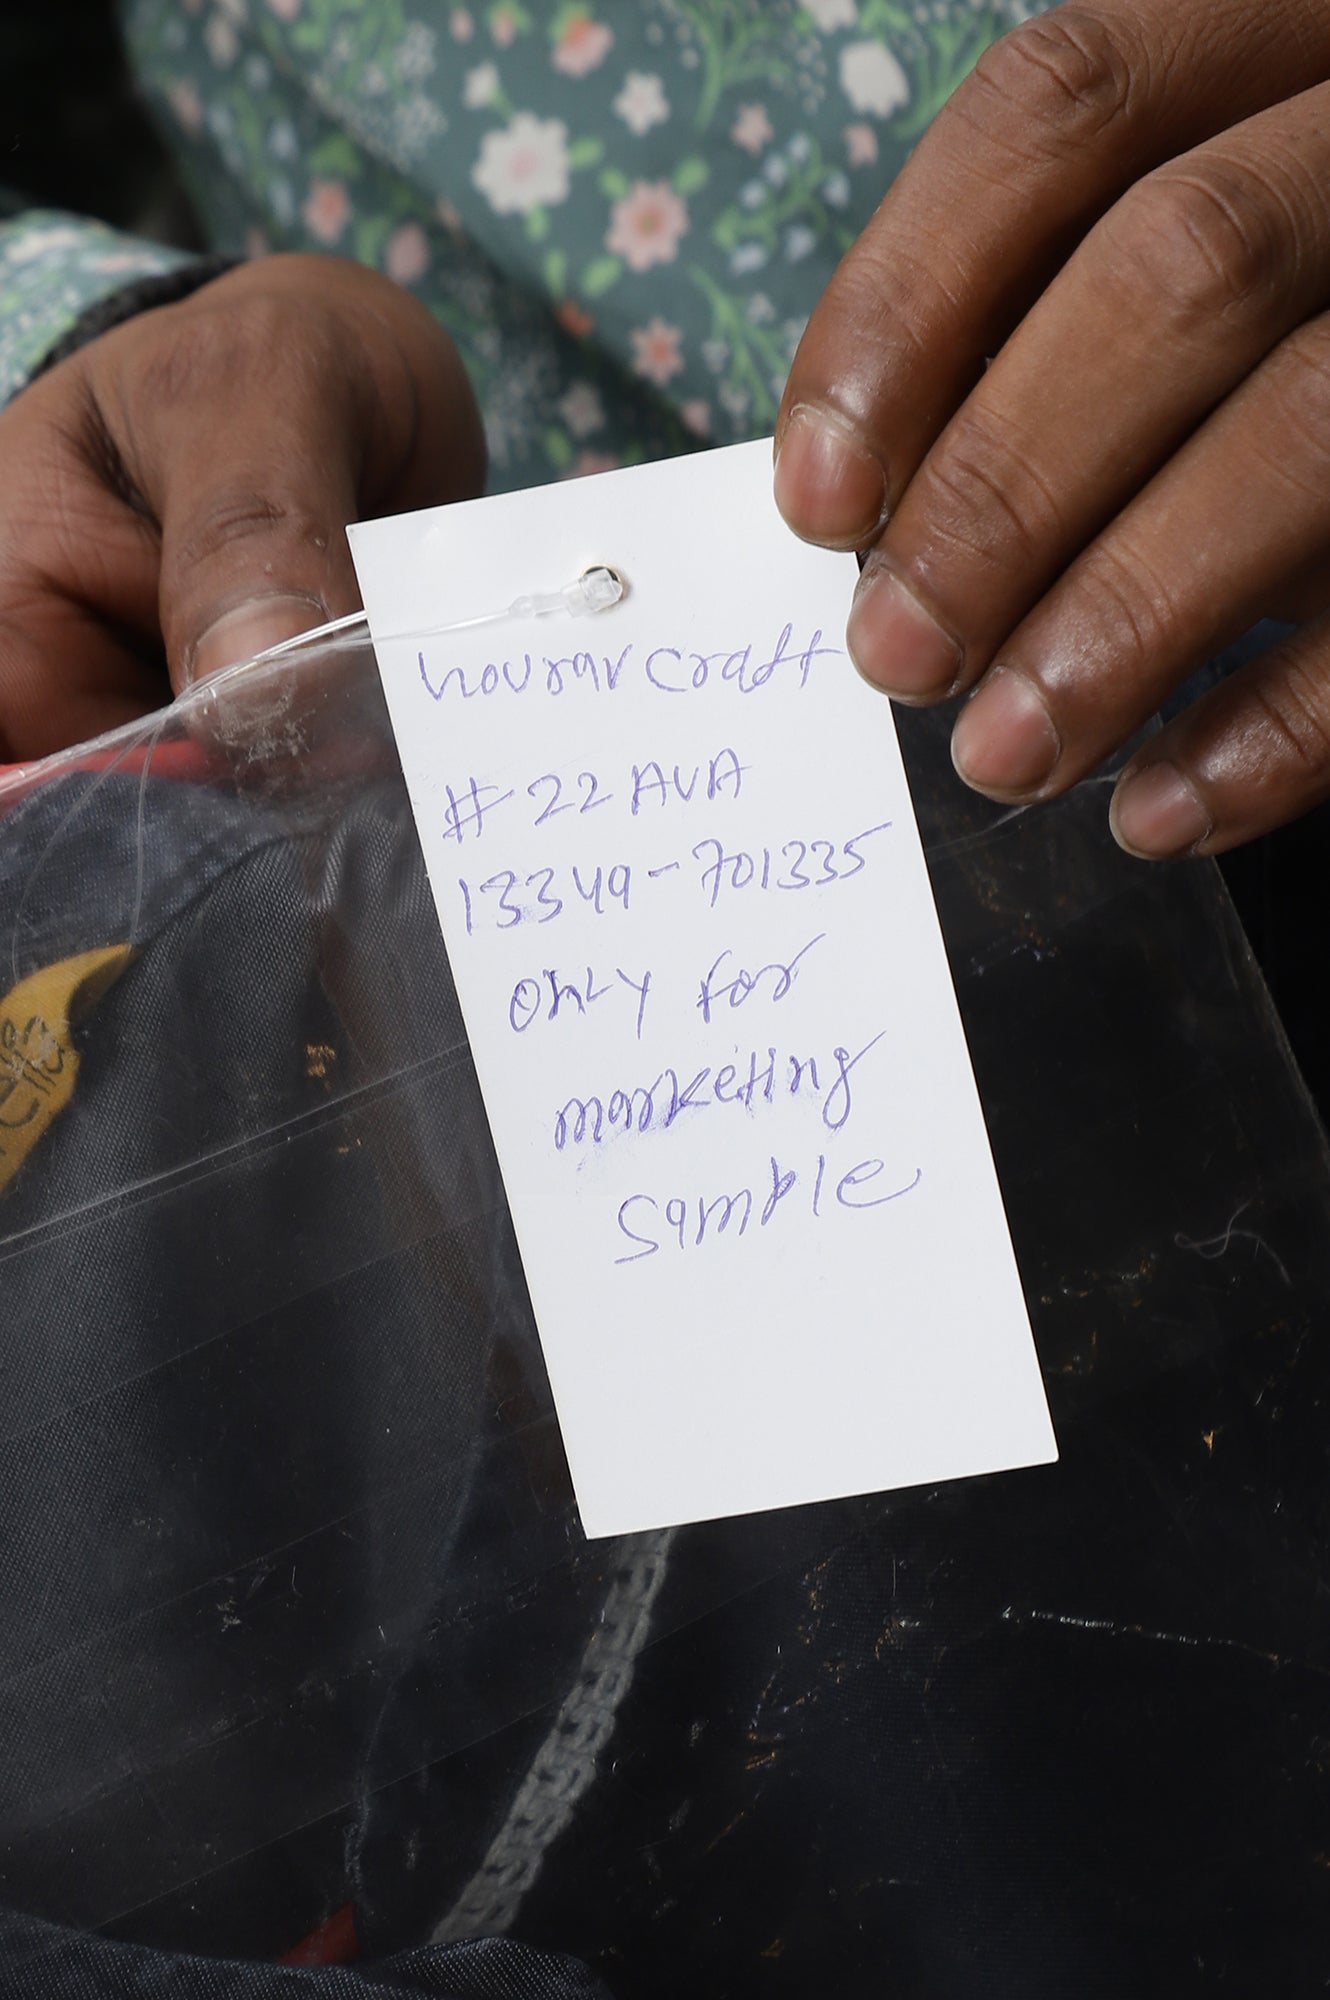 hourar craft
# 22 AVA
13349-701335
only for
marketing
sample